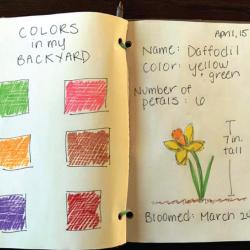 COLORS
in my
BACKYARD
April, 15
Name: Daffodil
Color: yellow
+ green
Number of
petals: 6
7 in.
tall
Bloomed: March